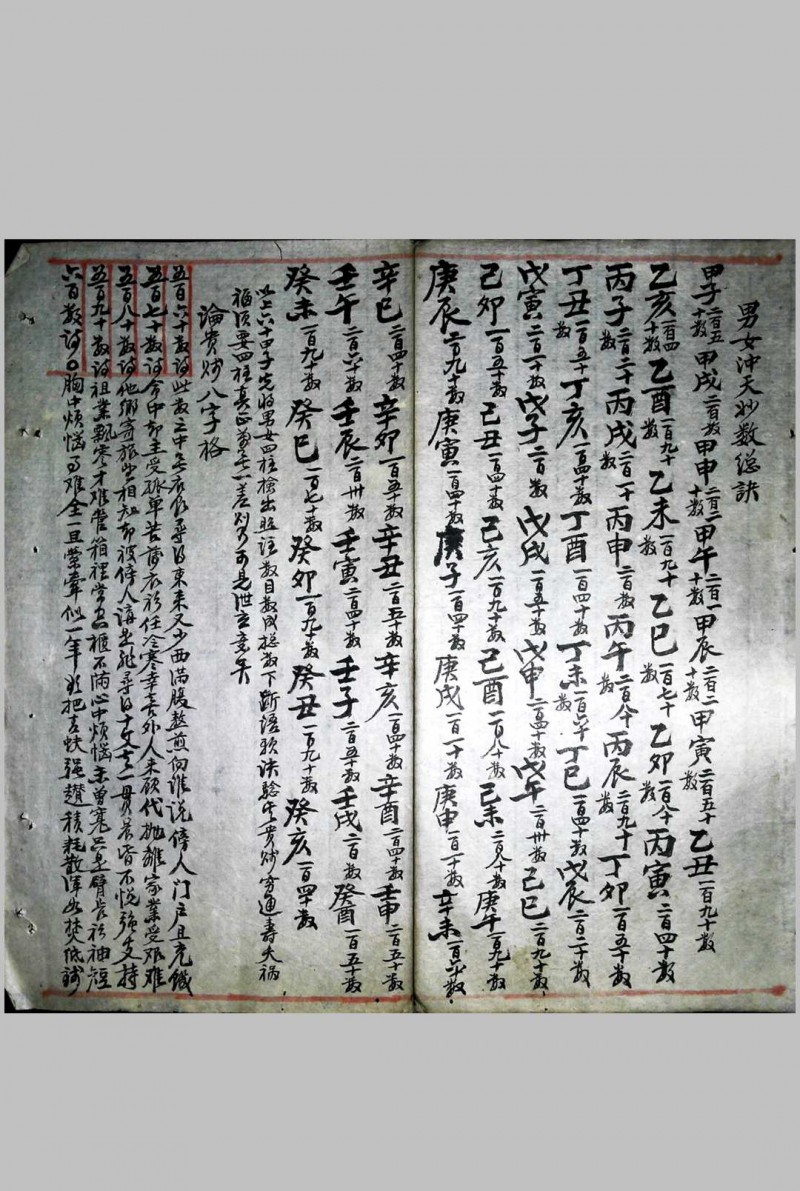 男女沖天妙數總訣
甲子二百五十數 甲戌二百數 甲申二百二十數 甲午二百一十數 甲辰二百二十數 甲寅二百五十數 乙丑一百九十數
乙亥二百四十數 乙酉一百九十數 乙未一百九十數 乙巳一百七十數 乙卯一百八十數 丙寅二百四十數
丙子二百二十數 丙戌二百一十數 丙申二百數 丙午二百八十數 丙辰二百九十數 丁卯一百五十數
丁丑一百五十數 丁亥一百四十數 丁酉一百四十數 丁未一百六十數 丁巳一百四十數 戊辰二百二十數
戊寅二百一十數 戊子二百數 戊戌一百五十數 戊申二百四十數 戊午二百卅數 己巳二百九十數
己卯一百五十數 己丑一百四十數 己亥一百九十數 己酉一百八十數 己未二百八十數 庚午一百九十數
庚辰二百九十數 庚寅一百四十數 庚子一百四十數 庚戌一百一十數 庚申一百二十數 辛未一百六十數
辛巳二百四十數 辛卯一百五十數 辛丑二百五十數 辛亥一百四十數 辛酉二百四十數 壬申二百五十數
壬午二百六十數 壬辰二百卅數 壬寅二百四十數 壬子二百五十數 壬戌二百數 癸酉一百五十數
癸未一百九十數 癸巳一百七十數 癸卯一百九十數 癸丑一百九十數 癸亥一百四十數
以上六十甲子先將男女四柱檢出照註數目數成總數下斷語歌訣驗生貴賤窮通壽夭禍
福須要四柱真正
論貴賤八字格
五百六十數詩 此數之中無衣食尋得東來又少西滿腹愁煎向誰說傍人門戶且充饑
五百七十數詩 命中却主受孤單苦 衣衫任冷寒幸喜外人來顧代拋離家業受艱難
五百八十數詩 他鄉寄旅無相知却被傍人 尋得十文 一貫 皆不悅強支持
五百九十數詩 祖業飄寒才難營箱裡常空櫃不滿心中煩惱未曾寬只是臂長衫袖短
六百數詩 胸中煩惱 難全一旦縈牽似一年 把 強 積耗散渾如焚紙錢